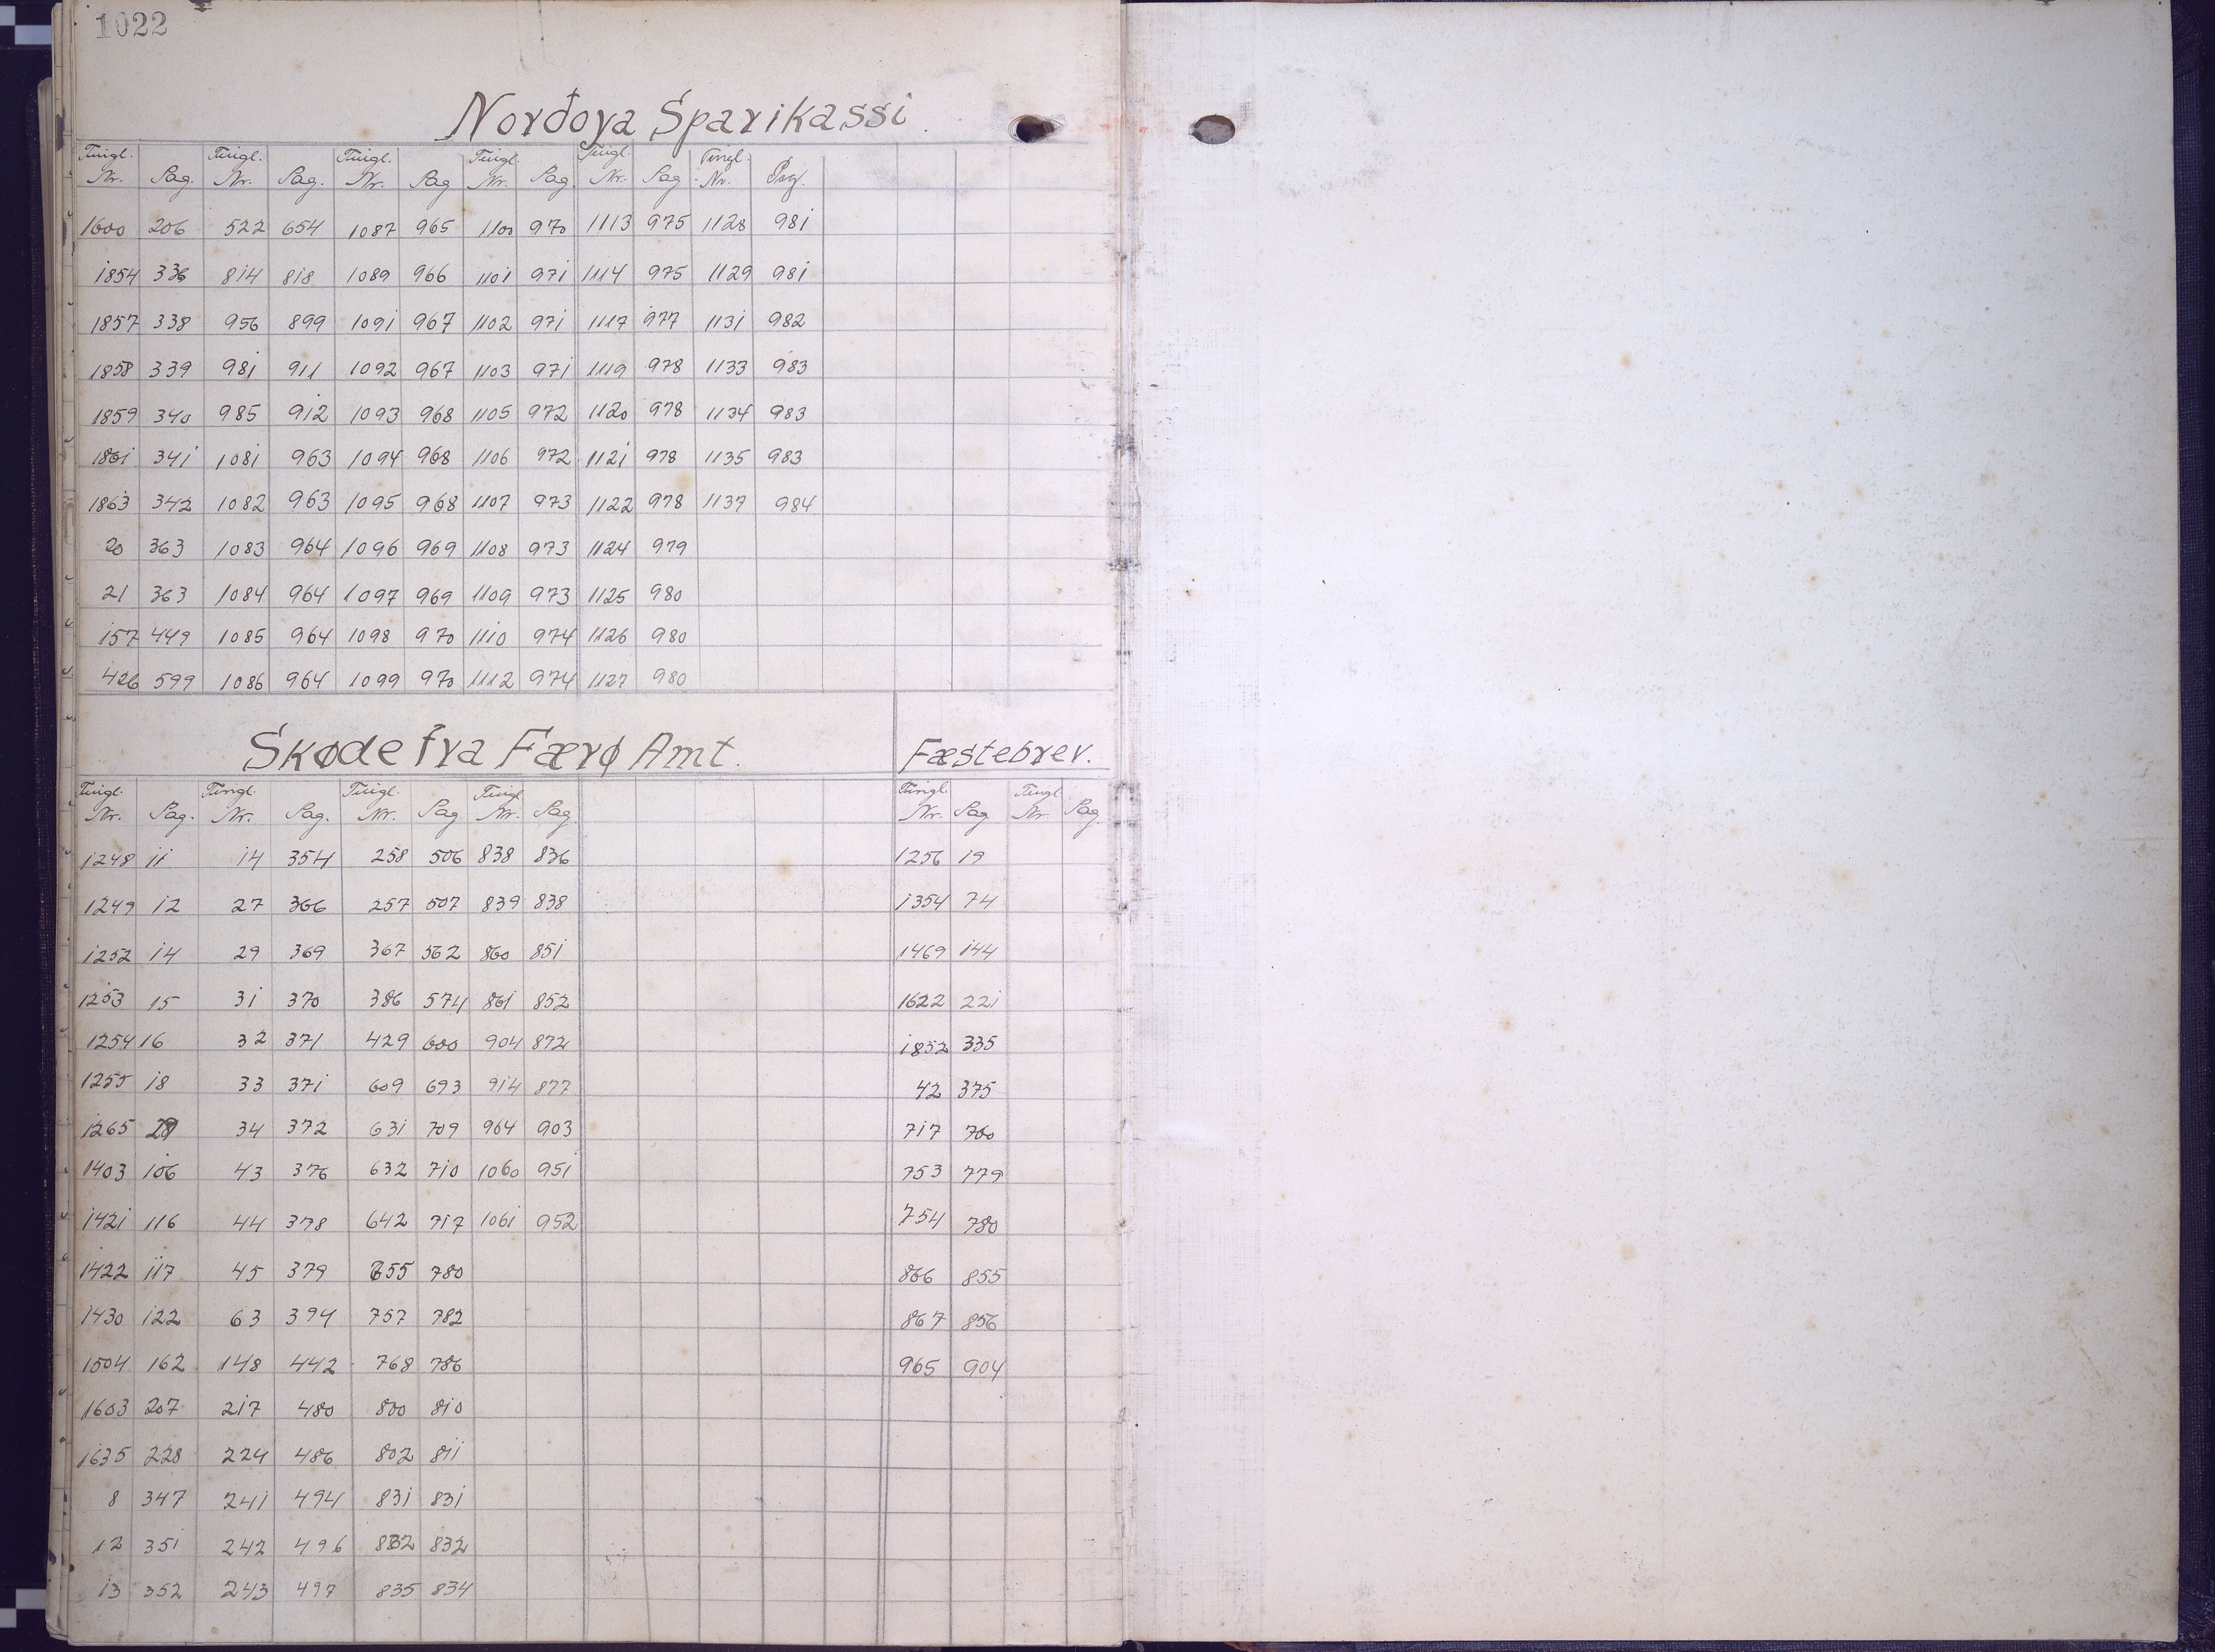 1022
Norðoya Sparikassi.
Tingl. Nr. Pag. Tingl. Nr. Pag. Tingl. Nr. Pag Tingl. Nr. Pag. Tingl. Nr. Pag. Tingl. Nr. Pag.
1600 206 522 654 1087 965 1100 970 1113 975 1128 981
1854 336 814 818 1089 966 1101 971 1114 975 1129 981
1857 338 956 899 1091 967 1102 971 1117 977 1131 982
1858 339 981 911 1092 967 1103 971 1119 978 1133 983
1859 340 985 912 1093 968 1105 972 1120 978 1134 983
1861 341 1081 963 1094 968 1106 972 1121 978 1135 983
1863 342 1082 963 1095 968 1107 973 1122 978 1137 984
20 363 1083 964 1096 969 1108 973 1124 979
21 363 1084 964 1097 969 1109 973 1125 980
157 449 1085 964 1098 970 1110 974 1126 980
426 599 1086 964 1099 970 1112 974 1127 980
Skøde fra Færø Amt.
Tingl. Nr. Pag. Tingl. Nr. Pag. Tingl. Nr. Pag Tingl. Nr. Pag.
1248 11 14 354 258 506 838 836
1249 12 27 366 257 507 839 838
1252 14 29 369 367 562 860 851
1253 15 31 370 386 574 861 852
1254 16 32 371 429 600 904 872
1255 18 33 371 609 693 914 877
1265 34 372 631 709 964 903
1403 106 43 376 632 710 1060 951
1421 116 44 378 642 717 1061 952
1422 117 45 379 655 780
1430 122 63 394 757 782
1504 162 148 442 768 786
1603 207 217 480 800 810
1635 228 224 486 802 811
8 347 241 494 831 831
12 351 242 496 832 832
13 352 243 497 835 834
Fæstebrev.
Tingl. Nr. Pag Tingl. Nr. Pag.
1256 19
1354 74
1469 144
1622 221
1852 335
42 375
717 760
753 779
754 780
866 855
867 856
965 904